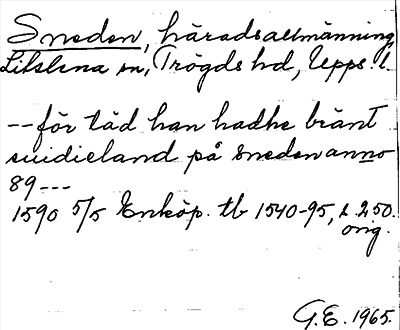 Sneden, häradsallmänning,
Litslena sn, Trögds hd, Upps. l.
--för täd han hadhe bränt
suidieland på Sneden anno
89---
1590 5/5 Enköp. tb 1540-95, s 250.
orig.
G.E. 1965.